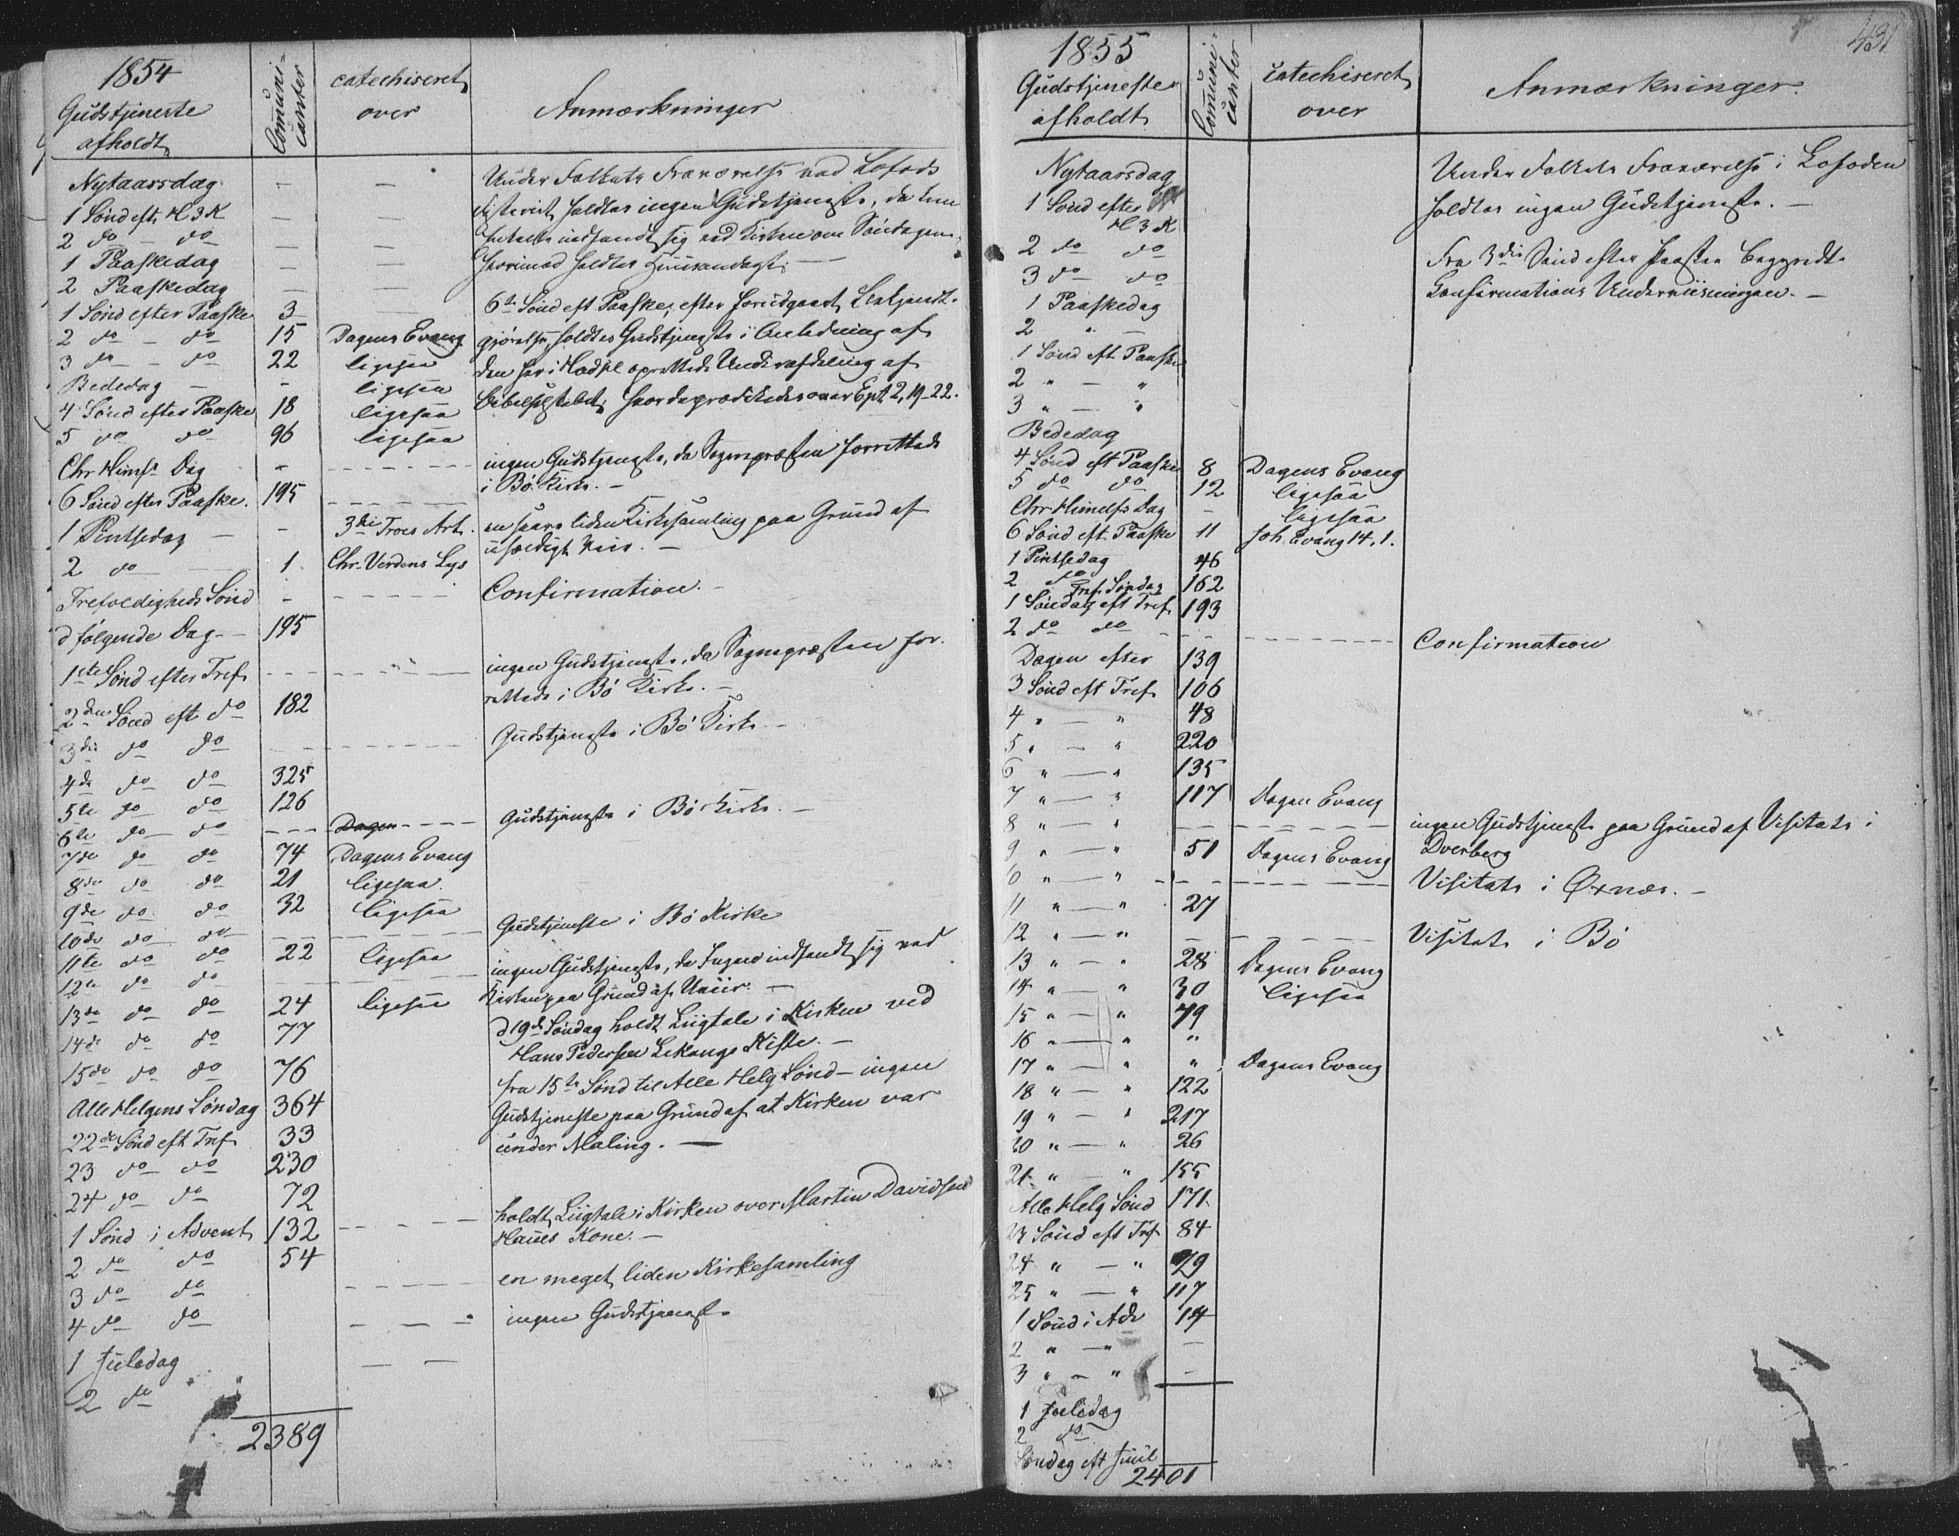 1854
Gudstjeneste
afholdt
Comuni-
canter
catechiseret
over
Anmærkninger
Nytaarsdag - -
1 Sønd eft H 3 K - -
2 do - do - -
1 Paaskedag - -
2 Paaskedag - -
1 Sønd efter Paaske 3 -
2 do - do 15 Dagens Evang
3 do - do 22 ligesaa
Bededag - - ligesaa
4 Sønd efter Paaske 18 ligesaa
5 do do 96 ligesaa
Chr Himf. Dag -
6 Sønd efter Paaske. 195
1 Pintsedag - - 3die Troes Art.
2 do 1. Chr. Verdens Lys
Trefoldigheds Sønd -
d følgende Dag - 195
1ste Sønd efter Tref.
2den Sønd eft do 182
3die do do
4de do do 325
5te do do 126
6te do do Dagen
7de do do 74 Dagens Evang
8de do do 21 ligesaa.
9de do do 32 ligesaa
10de do do
11te do do 22 ligesaa
12te do do
13de do do 24 ligesaa
14de do do 77
15de do do 76
Alle Helgens Søndag 364
22de Sønd eft Tref. 33
23 do do 230
24 do do 72
1 Sønd i Advent 132
2 do do 54
3 do do
4 do do
1 Juledag
2 do
2389
Under Folkets Fraværelse ved Lofods
fisteriet holdtes ingen Gudstjeneste, da
indfandt sig ved Kirken om Søndagen,
hvorimod holdtes Huusandagt. -
6te Sønd eft Paaske, efter forudgaaet Bekjendt-
gjørelse, holdtes Gudstjeneste i Anledning af
den her i Hadsel oprettede Underafdeling af
Bibelselskabet, hvor da prædikedes over Eph 2, 19-22.
ingen Gudstjeneste, da Sognepræsten forrettede
i Bø Kirke. -
en saare liden Kirkesamling paa Grund af
usædvligt Veir. -
Confirmation. -
ingen Gudstjeneste, da Sognepræsten for-
rettede i Bø Kirke. -
Gudstjeneste i Bø Kirke -
Gudstjeneste i Bø Kirke. -
Gudstjeneste i Bø Kirke
ingen Gudstjeneste, da Ingen indfandt sig ved
Kirken paa Grund af Uveir. -
d 19de Søndag holdt Liigtale i Kirken ved
Hans Pedersen Lekangs Kiste. -
fra 15te Sønd til Alle Helg Sønd - ingen
Gudstjeneste paa Grund af at Kirken var
under Maling. -
holdt Liigtale i Kirken over Martin Davidsen
Haues Kone. -
en meget liden Kirkesamling
ingen Gudstjeneste
431
1855
Gudstjeneste
afholdt
Comuni-
canter
catechiseret
over
Anmærkninger.
Nytaarsdag
1 Sønd efter
H 3 K
2 do do
3 do do
1 Paaskedag
2 " -
1 Sønd eft Paaske
2 " - "
3 " - "
Bededag
4 Sønd eft Paaske 8 Dagens Evang
5 do do 12 ligesaa
Chr Himelfs Dag - ligesaa
6 Sønd eft. Paaske 11 Joh. Evang 14, 1.
1 Pintsedag 46
2 do 162
Tref. Søndag
1 Søndag eft Tref. 193
2 do do - -
Dagen efter 139
3 Sønd eft Tref. 106
4 " - " 48
5 " - " 220
6 " - " 135
7 " - " 117 Dagens Evang
8 " - "
9 " - " 51 Dagens Evang
10 " - "
11 " - " 27
12 " - "
13 " - " 28 Dagens Evang
14 " - " 30 ligesaa
15 " - " 49
16 " - " "
17 " - " " Dagens Evang
18 " - " 122
19 " - " 217
20 " - " 26
21 " - " 155
Alle Helg Sønd 171
23 Sønd eft Tref 84
24 " - " 29
25 " - " 117
1 Sønd i Adv 14
2 " - " -
3 " - " -
1 Juledag
2 do
Søndag eft Juul
2401
Under Folkets Fraværelse i Lofoden
holdtes ingen Gudstjeneste. -
Fra 3die Sønd efter Paaske begyndte
Confirmations Underviisningen. -
Confirmation
ingen Gudstjeneste paa Grund af Visitats i
Dverberg
Visitats i Øxnæs. -
Visitats i Bø